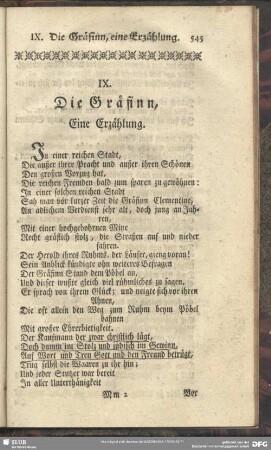 IX. Die Gräfinn, eine Erzählung. 545
IX.
Die Gräfinn,
Eine Erzählung.
In einer reichen Stadt,
Die außer ihrer Pracht und außer ihren Schönen
Den großen Vorzug hat,
Die reichen Fremden bald zum sparen zu gewöhnen:
In einer solchen reichen Stadt
Sah man vor kurzer Zeit die Gräfinn Clementine,
An adlichem Verdienst sehr alt, doch jung an Jah-
ren,
Mit einer hochgebohrnen Mine
Recht gräflich stolz, die Straßen auf und nieder
fahren.
Der Herold ihres Ruhms, der Läufer, gieng voran!
Sein Anblick kündigte ohn weiteres Befragen
Der Gräfinn Stand dem Pöbel an,
Und dieser wußte gleich viel rühmliches zu sagen.
Er sprach von ihrem Glück; und neigte sich vor ihren
Ahnen,
Die oft allein den Weg zum Ruhm beym Pöbel
bahnen
Mit großer Ehrerbietigkeit.
Der Kaufmann der zwar christlich lügt,
Doch dumm im Stolz und jüdisch im Gewinn,
Auf Wort und Treu Gott und den Freund betrügt,
Trug selbst die Waaren zu ihr hin;
Und jeder Stutzer war bereit
In aller Unterthänigkeit
Mm 2 Vor